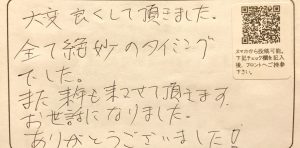 大変良くして頂きました。
全て絶妙のタイミング
でした。
また来年も来させて頂きます。
お世話になりました。
ありがとうございました!
スマホから投稿可能。
下記チェック欄を記入
後、フロントへご持参
下さい。